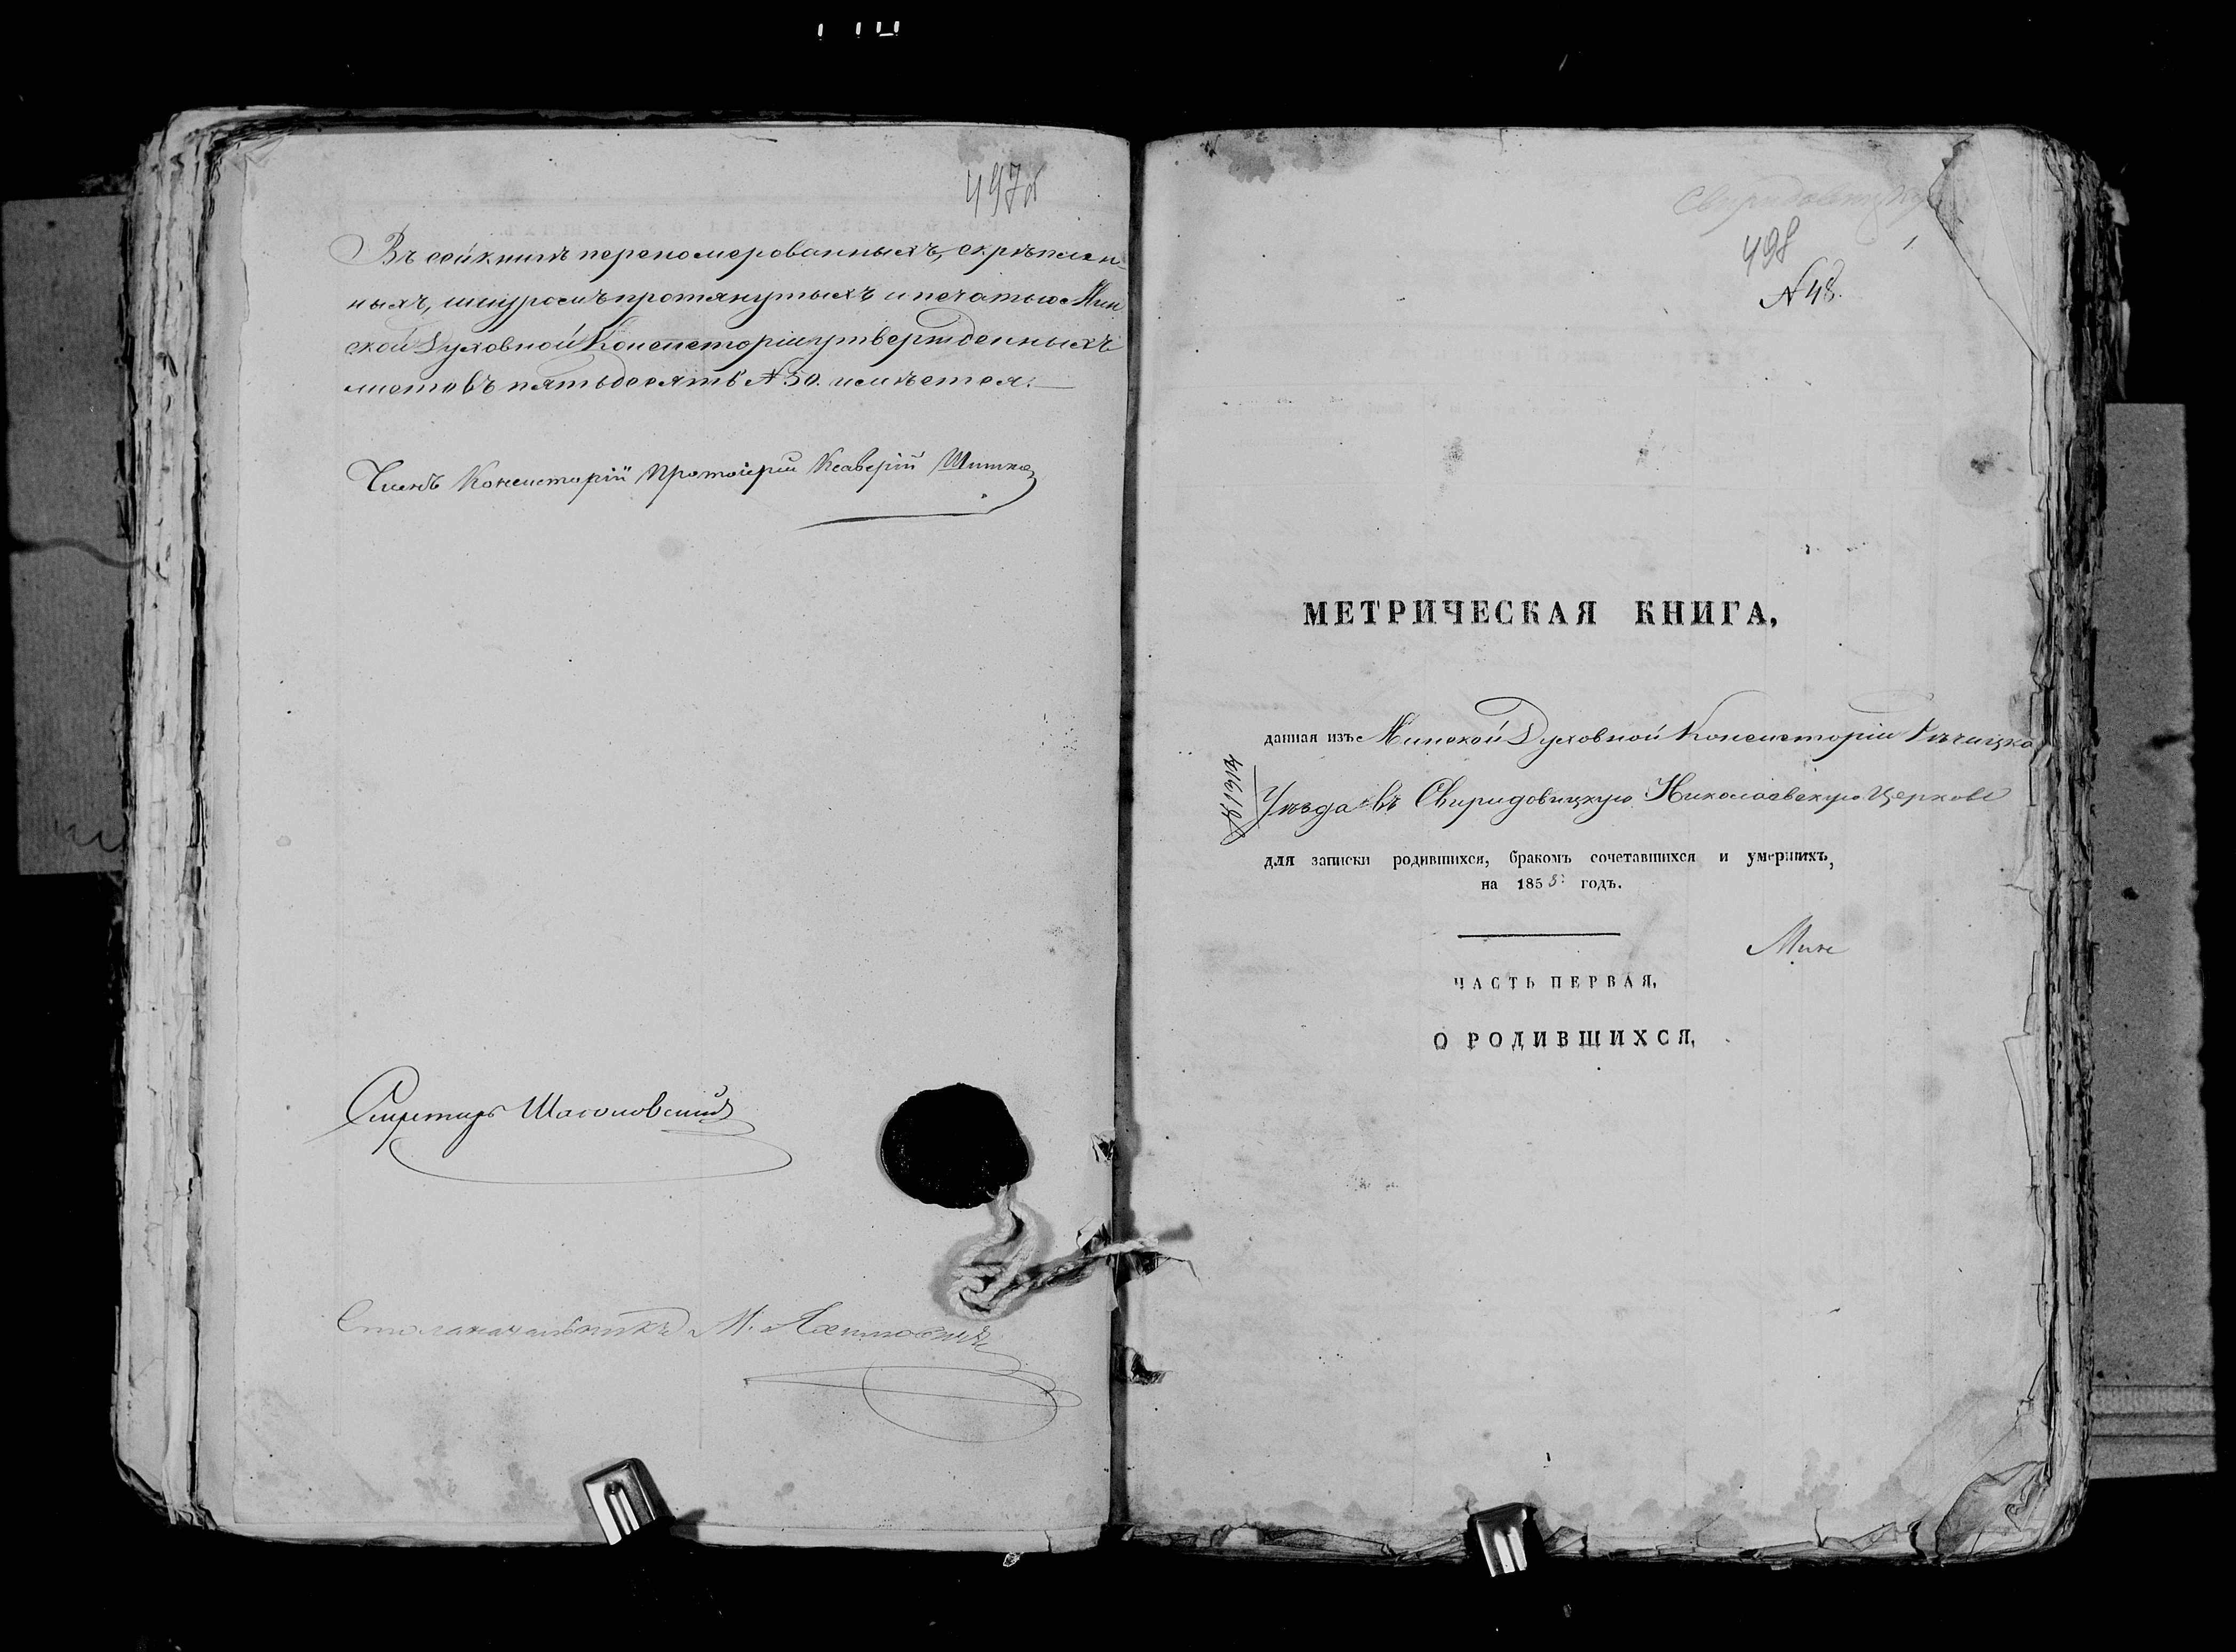 497об
Въ сей книгѣ переномерованныхъ, скрѣплен-
ныхъ, шнуромъ протянутыхъ и печатью Мин
ской Духовной Консисторіи утвержденныхъ
листовъ пятьдесятъ № 50. имѣется.
Членъ Консисторіи Протоіерей Ксаверій
Секретарь
Столоначальникъ М.
Свиридовицкую
498
№ 48.
МЕТРИЧЕСКАЯ КНИГА,
данная изъ Минской Духовной Консисторіи Рѣчицка
Уѣзда въ Свиридовицкую Николаевскую Церковь
для записки родившихся, бракомъ сочетавшихся и умершихъ,
на 1858: годъ.
Мин
ЧАСТЬ ПЕРВАЯ,
О РОДИВШИХСЯ,